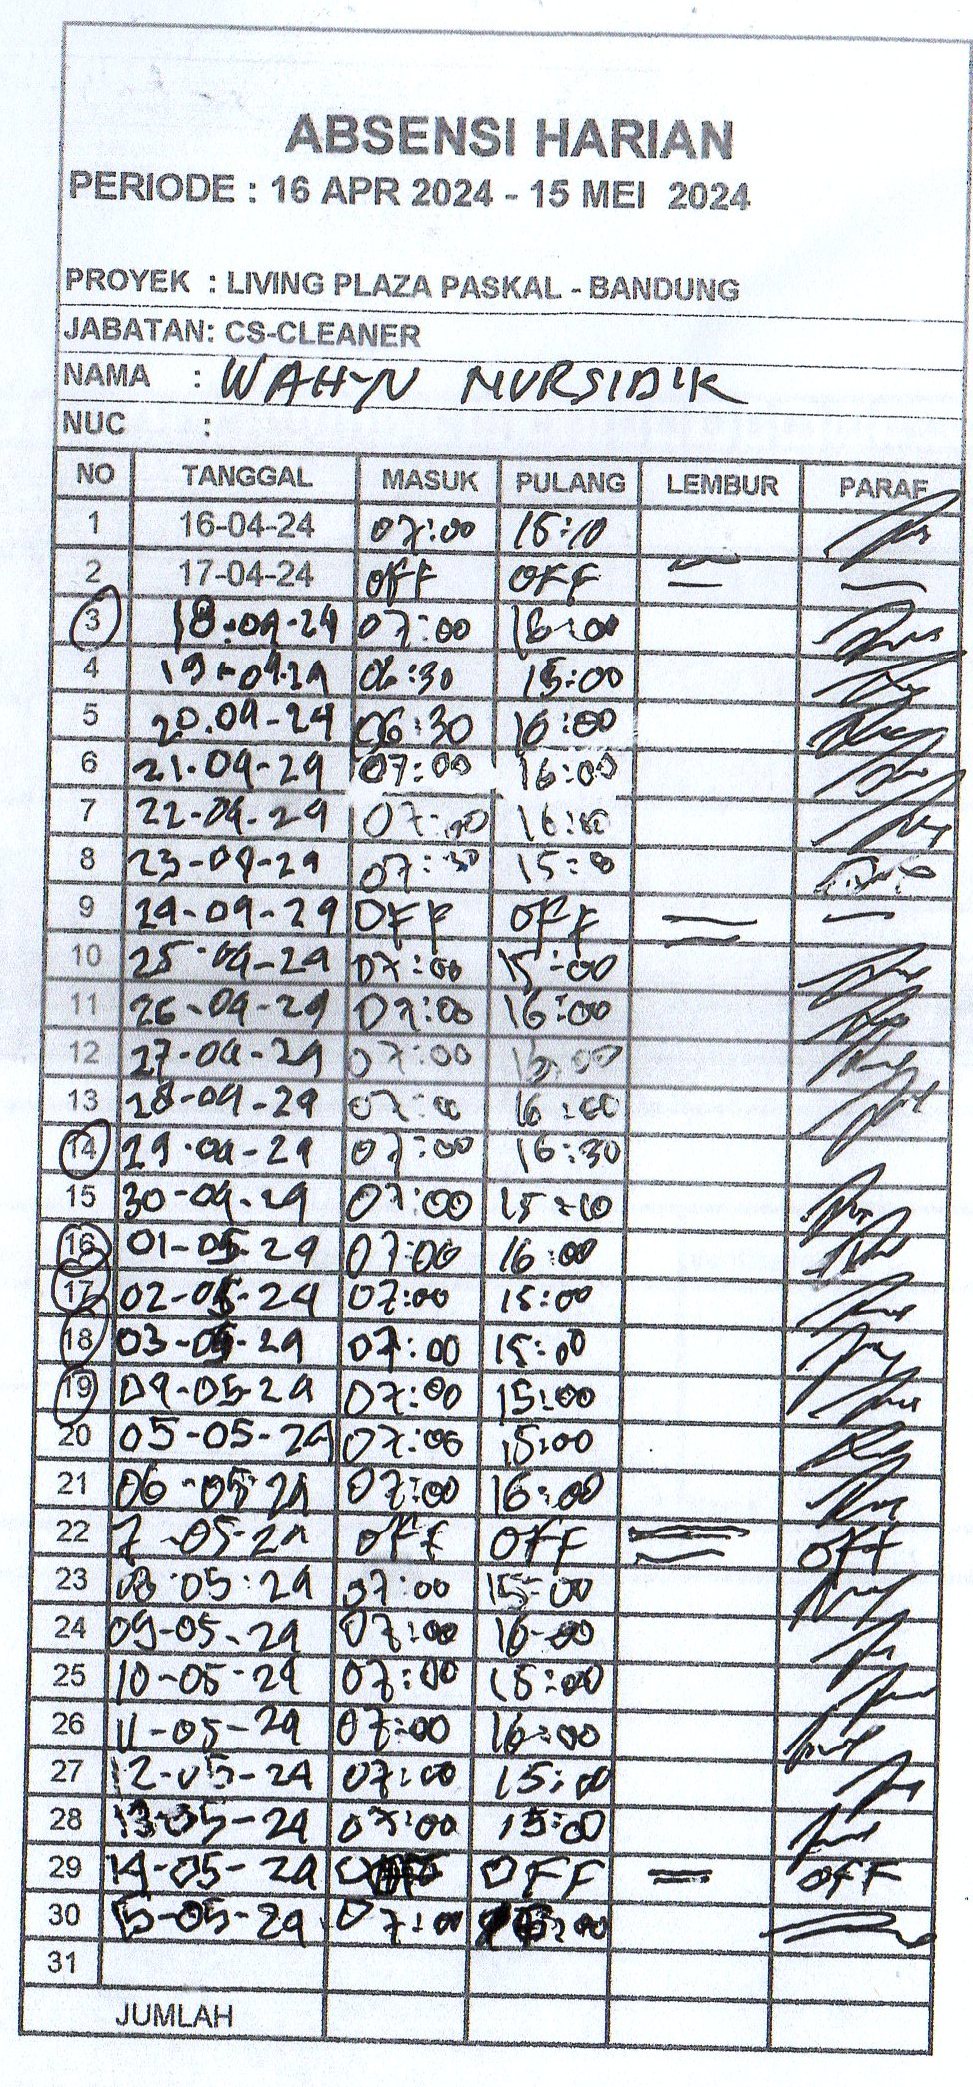 ABSENSI HARIAN
PERIODE : 16 APR 2024 - 15 MEI 2024
PROYEK : LIVING PLAZA PASKAL - BANDUNG
JABATAN: CS-CLEANER
NAMA : WAHYU NURSIDIK
NUC :
NO TANGGAL MASUK PULANG LEMBUR PARAF
1 16-04-24 07:00 15:10
2 17-04-24 OFF OFF
3 18-04-24 07:00 16:00
4 19-04-24 06:30 15:00
5 20.04-24 06:30 16:00
6 21.04-24 07:00 16:00
7 22-04-24 07:00 16:00
8 23-04-24 07:30
9 24-04-24 OFF OFF
10 25-04-24 07:00 15:00
11 26-04-24 07:00 16:00
12 27-04-24 07:00
13 28-04-24 07:00 16:00
14 29-04-24 07:00 16:30
15 30-04-24 07:00 15:10
16 01-05-24 07:00 16:00
17 02-05-24 07:00 15:00
18 03-05-24 07:00 15:00
19 04-05-24 07:00 15:00
20 05-05-24 07:00 15:00
21 06-05-24 07:00 16:00
22 7-05-24 OFF OFF OFF
23 08-05-24 07:00 15:00
24 09-05-24 07:00 16:00
25 10-05-24 07:00 15:00
26 11-05-24 07:00 16:00
27 12-05-24 07:00 15:00
28 13-05-24 07:00 15:00
29 14-05-24 OFF OFF
30 15-05-24 07:00
31
JUMLAH